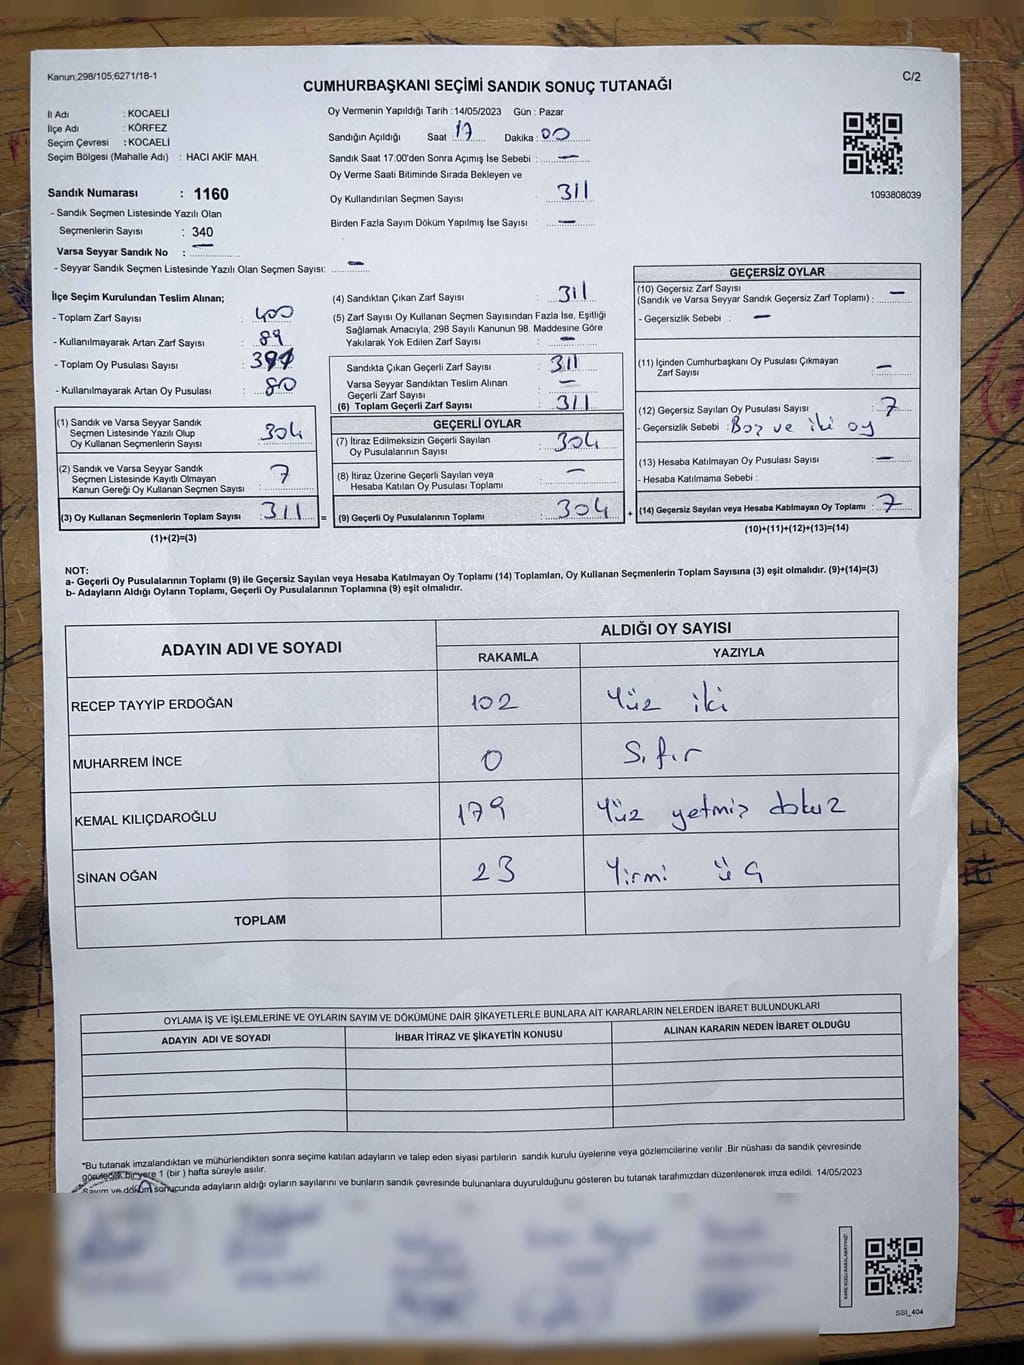 Kanun;298/105;6271/18-1
C/2
CUMHURBAŞKANI SEÇİMİ SANDIK SONUÇ TUTANAĞI
İl Adı : KOCAELİ
İlçe Adı : KÖRFEZ
Seçim Çevresi : KOCAELİ
Seçim Bölgesi (Mahalle Adı) : HACI AKİF MAH.
Sandık Numarası : 1160
- Sandık Seçmen Listesinde Yazılı Olan
Seçmenlerin Sayısı : 340
Varsa Seyyar Sandık No : —
- Seyyar Sandık Seçmen Listesinde Yazılı Olan Seçmen Sayısı: —
Oy Vermenin Yapıldığı Tarih :14/05/2023 Gün : Pazar
Sandığın Açıldığı Saat : 17 Dakika : 00
Sandık Saat 17:00'den Sonra Açımış İse Sebebi : —
Oy Verme Saati Bitiminde Sırada Bekleyen ve
Oy Kullandırılan Seçmen Sayısı : 311
Birden Fazla Sayım Döküm Yapılmış İse Sayısı : —
1093808039
İlçe Seçim Kurulundan Teslim Alınan;
- Toplam Zarf Sayısı : 400
- Kullanılmayarak Artan Zarf Sayısı : 89
- Toplam Oy Pusulası Sayısı :
- Kullanılmayarak Artan Oy Pusulası : 80
(1) Sandık ve Varsa Seyyar Sandık
Seçmen Listesinde Yazılı Olup
Oy Kullanan Seçmenlerin Sayısı : 304
(2) Sandık ve Varsa Seyyar Sandık
Seçmen Listesinde Kayıtlı Olmayan
Kanun Gereği Oy Kullanan Seçmen Sayısı : 7
(3) Oy Kullanan Seçmenlerin Toplam Sayısı : 311 =
(1)+(2)=(3)
(4) Sandıktan Çıkan Zarf Sayısı : 311
(5) Zarf Sayısı Oy Kullanan Seçmen Sayısından Fazla İse, Eşitliği
Sağlamak Amacıyla; 298 Sayılı Kanunun 98. Maddesine Göre
Yakılarak Yok Edilen Zarf Sayısı : —
Sandıkta Çıkan Geçerli Zarf Sayısı : 311
Varsa Seyyar Sandıktan Teslim Alınan
Geçerli Zarf Sayısı : —
(6) Toplam Geçerli Zarf Sayısı : 311
GEÇERLİ OYLAR
(7) İtiraz Edilmeksizin Geçerli Sayılan
Oy Pusulalarının Sayısı : 304
(8) İtiraz Üzerine Geçerli Sayılan veya
Hesaba Katılan Oy Pusulası Toplamı : —
(9) Geçerli Oy Pusulalarının Toplamı : 304 +
GEÇERSİZ OYLAR
(10) Geçersiz Zarf Sayısı
(Sandık ve Varsa Seyyar Sandık Geçersiz Zarf Toplamı) : —
- Geçersizlik Sebebi : —
(11) İçinden Cumhurbaşkanı Oy Pusulası Çıkmayan
Zarf Sayısı : —
(12) Geçersiz Sayılan Oy Pusulası Sayısı : 7
- Geçersizlik Sebebi : Boş ve iki oy
(13) Hesaba Katılmayan Oy Pusulası Sayısı : —
- Hesaba Katılmama Sebebi :
(14) Geçersiz Sayılan veya Hesaba Katılmayan Oy Toplamı : 7
(10)+(11)+(12)+(13)=(14)
NOT:
a- Geçerli Oy Pusulalarının Toplamı (9) ile Geçersiz Sayılan veya Hesaba Katılmayan Oy Toplamı (14) Toplamları, Oy Kullanan Seçmenlerin Toplam Sayısına (3) eşit olmalıdır. (9)+(14)=(3)
b- Adayların Aldığı Oyların Toplamı, Geçerli Oy Pusulalarının Toplamına (9) eşit olmalıdır.
ADAYIN ADI VE SOYADI ALDIĞI OY SAYISI
RAKAMLA YAZIYLA
RECEP TAYYİP ERDOĞAN 102 Yüz iki
MUHARREM İNCE 0 Sıfır
KEMAL KILIÇDAROĞLU 179 Yüz yetmiş dokuz
SİNAN OĞAN 23 Yirmi üç
TOPLAM
OYLAMA İŞ VE İŞLEMLERİNE VE OYLARIN SAYIM VE DÖKÜMÜNE DAİR ŞİKAYETLERLE BUNLARA AİT KARARLARIN NELERDEN İBARET BULUNDUKLARI
ADAYIN ADI VE SOYADI İHBAR İTİRAZ VE ŞİKAYETİN KONUSU ALINAN KARARIN NEDEN İBARET OLDUĞU
*Bu tutanak imzalandıktan ve mühürlendikten sonra seçime katılan adayların ve talep eden siyasi partilerin sandık kurulu üyelerine veya gözlemcilerine verilir .Bir nüshası da sandık çevresinde
görülecek bir yere 1 (bir ) hafta süreyle asılır.
*Sayım ve döküm sonucunda adayların aldığı oyların sayılarını ve bunların sandık çevresinde bulunanlara duyurulduğunu gösteren bu tutanak tarafımızdan düzenlenerek imza edildi. 14/05/2023
KARE KODU KARALAMAYINIZ!
SSI_404